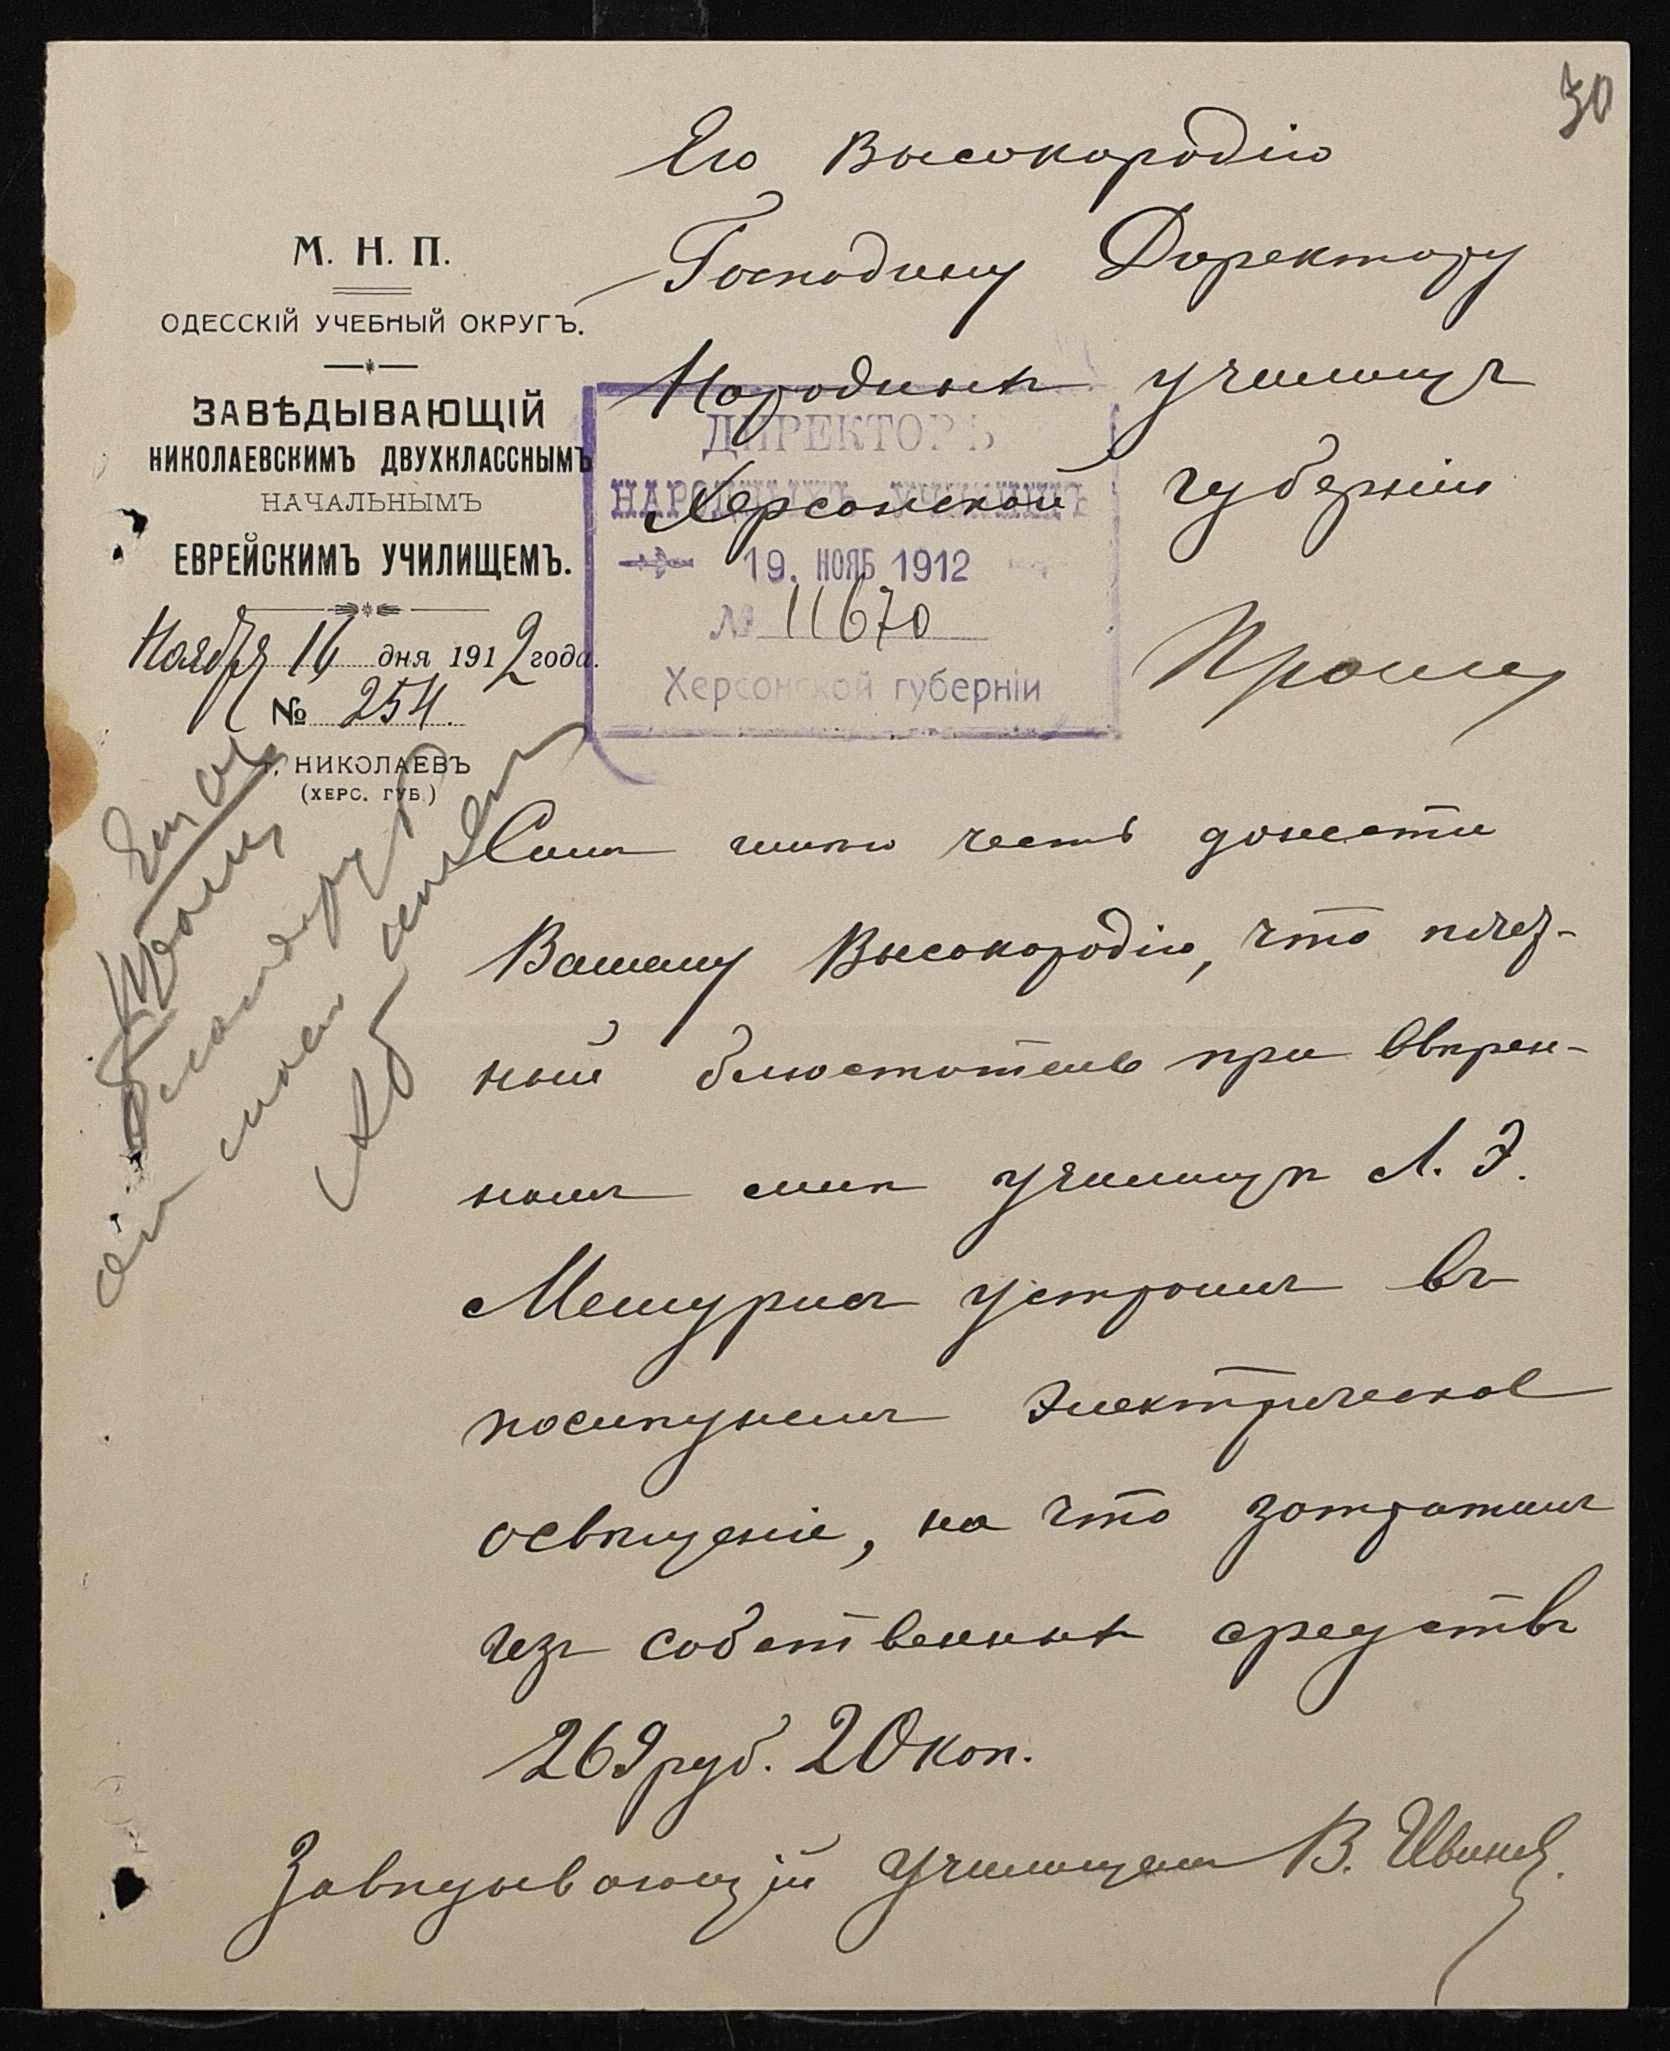 30
Его Высокородію
Господину Директору
Народныхъ училищъ
Херсонской губерніи
М. Н. П.
ОДЕССКІЙ УЧЕБНЫЙ ОКРУГЪ.
ЗАВѢДЫВАЮЩІЙ
НИКОЛАЕВСКИМЪ ДВУХКЛАССНЫМЪ
НАЧАЛЬНЫМЪ
ЕВРЕЙСКИМЪ УЧИЛИЩЕМЪ.
Ноября 16 дня 1912 года.
№ 254.
г. НИКОЛАЕВЪ
(ХЕРС. ГУБ.)
ДИРЕКТОРЪ
НАРОДНЫХЪ УЧИЛИЩЪ
19. НОЯБ 1912
№ 11670
Херсонской губерніи
Симъ имѣю честь донести
Вашему Высокородію, что почет-
ный блюститель при ввѣрен-
номъ мнѣ училищѣ Л. Э.
Мешурисъ устроилъ въ
послѣднемъ электрическое
освѣщеніе, на что затратилъ
изъ собственныхъ средствъ
269 руб. 20 коп.
Завѣдывающій училищемъ В.